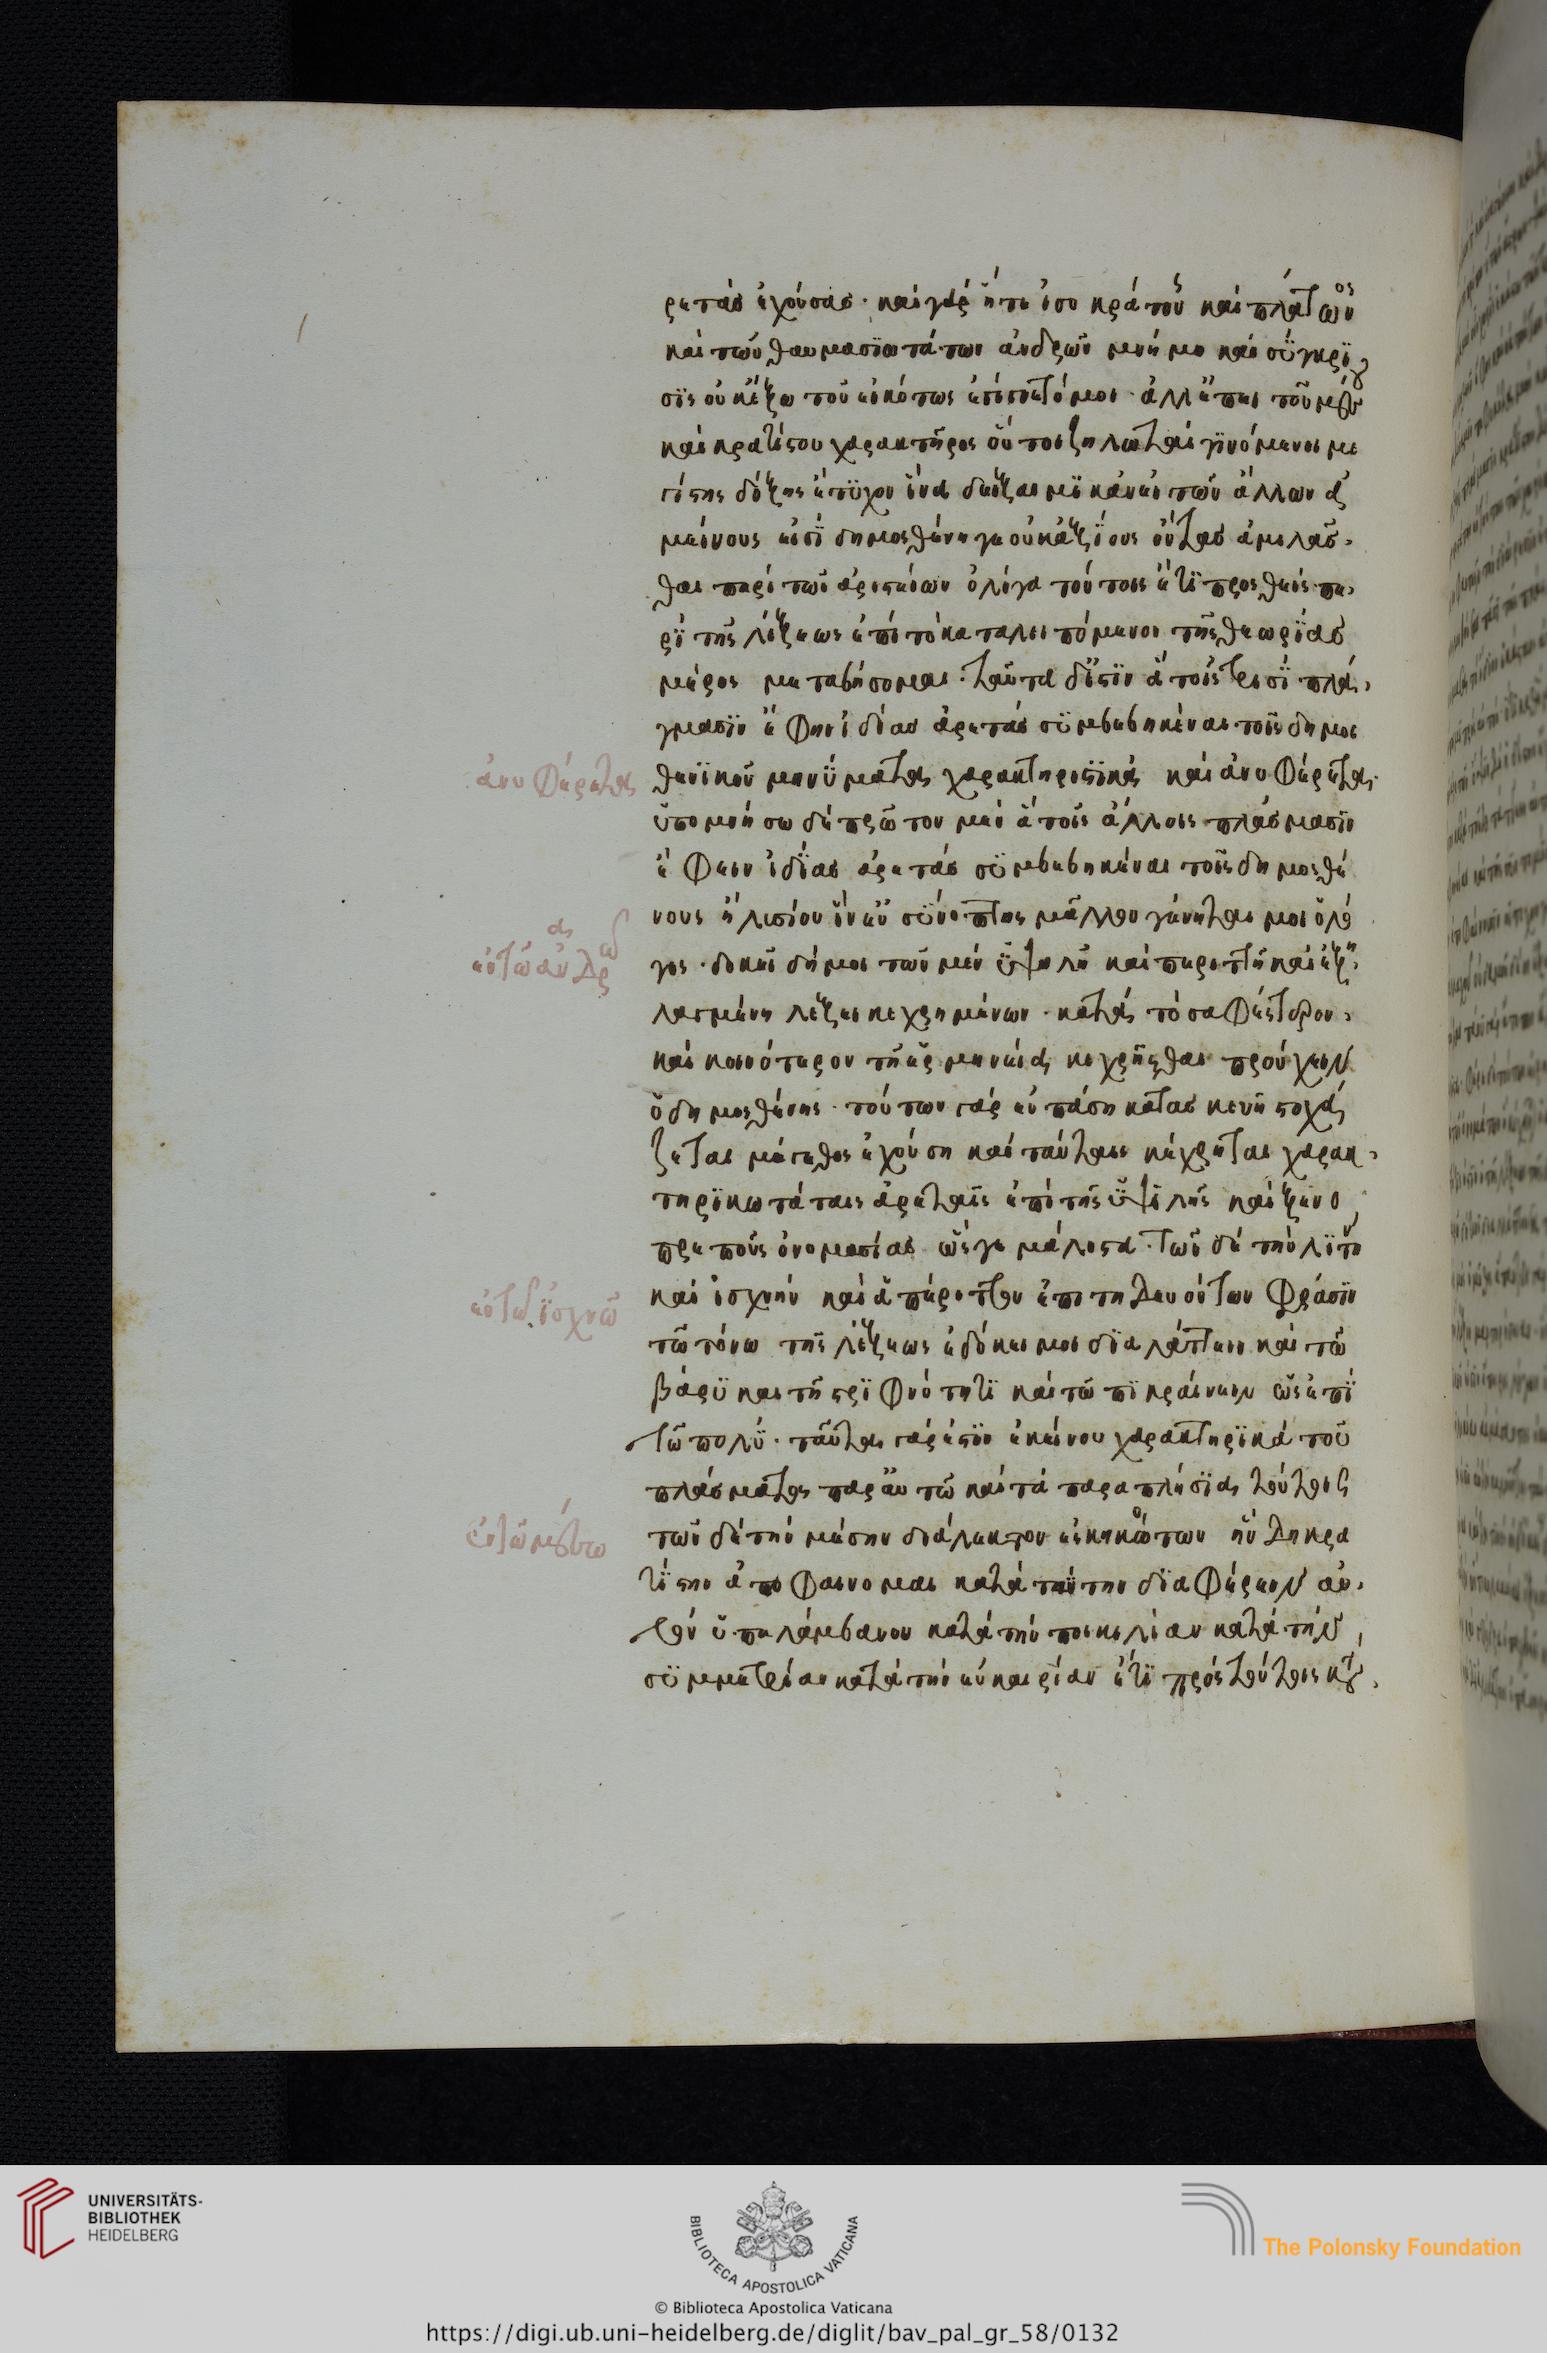 ρετὰς ἐχούσας· καὶ γὰρ ἥ τε ἰσοκράτους καὶ πλάτωνος
καὶ τῶν θαυμασϊωτάτων ἀνδρῶν μνήμη καὶ σϋγκρϊ
σϊς οὐκ ἔξω τοῦ εἰκότως ἐπιποιητό μοι· ἀλλ' ἐπεὶ τοῦ μέσου
καὶ κρατίστου χαρακτῆρος οὗτοι ζηλωταὶ γϊνόμενοι με
γίστης δόξης ἔτϋχον ἵνα δείξαιμϊ κἂν εἰ τῶν ἄλλων ἀ
μείνους εἰσῒ δημοσθένη γε οὐκ ἀξΐους ὄντας ἁμιλᾶσ
θαι περὶ τῶν ἀριστείων ὀλίγα τούτοις ἔτϊ προσθεὶς πε
ρῒ τῆς λέξεως ἐπὶ τὸ καταλειπόμενον τῆς θεωρΐας
μέρος μεταβήσομαι· ταῦτα δ' ἔστϊν ἃ τοῖς τρισῒ πλά
γμασϊν ἔφην ἰδίας ἀρετὰς σϋμβεβηκέναι τοῖς δημοσ
θενϊκοῦ μηνΰματα χαρακτηριστϊκὰ καὶ ἀνυφέρετα
ὑπομνήσω δὲ πρῶτον μὲν ἃ τοῖς ἄλλοις πλάσμασϊν
ἔφειν ἰδΐας ἀρετὰς σϋμβεβηκέναι τοῖς δημοσθέ
νους ἡλισίου ἵν' εὐσΰνοπτος μᾶλλον γένηται μοι ὁ λό
γος· δοκεῖ δή μοι τῶν μὲν ὑψηλῇ καὶ περιττῇ καὶ ἐξη
λαγμένῃ λέξει κεχρημένων· κατὰ τὸ σαφέστερον
καὶ κοινότερον τῇ ἑρμηνείᾳ κεχρῆσθαι προύχειν
ὁ δημοσθένης· τούτων γὰρ ἐν πάσῃ κατασκευῇ στοχά
ζεται μέγεθος ἐχούσῃ καὶ ταύταις κέχρηται χαρακ
τηρϊκωτάταις ἀρεταῖς ἐπὶ τῆς ὑψϊλῆς καὶ ξενο
πρεποῦς ὀνομασίας ὥς γε μάλιστα· τῶν δὲ τὴν λϊτὴν
καὶ ἰσχνὴν καὶ ἀπέριττον ἐπιτηδευόντων φράσϊν
τῷ τόνῳ τῆς λέξεως ἐδόκει μοι δϊαλάττειν καὶ τῷ
βάρϋ καὶ τῇ στρϊφνότητϊ καὶ τῷ πϊκραίνειν ὡς ἐπῒ
τῶ πολΰ· ταῦτα γὰρ ἐστϊν ἐκείνου χαρακτηρϊκὰ τοῦ
πλάσματος παρ' αὐτῷ καὶ τὰ παραπλήσϊα τούτοις
τῶν δὲ τὴν μέσην διάλεκτον εἰσκηκότων ἣν δὴ κρα
τΐστην ἀποφαίνομαι κατὰ ταύτην δϊαφέρειν αὐ
τὸν ὑπελάμβανον κατὰ τὴν ποικιλίαν κατὰ τὴν
σϋμμετρίαν κατὰ τὴν εὐκαιρίαν ἔτϊ πρὸς τούτοις κατὰ
ἀνυφέρετα
ἐν τῶ ἁνδρ
ἐν τῶ ἰσχνῶ
ἐν τῶ μέσω
UNIVERSITÄTS-
BIBLIOTHEK
HEIDELBERG
BIBLIOTECA APOSTOLICA VATICANA
© Biblioteca Apostolica Vaticana
The Polonsky Foundation
https://digi.ub.uni-heidelberg.de/diglit/bav_pal_gr_58/0132